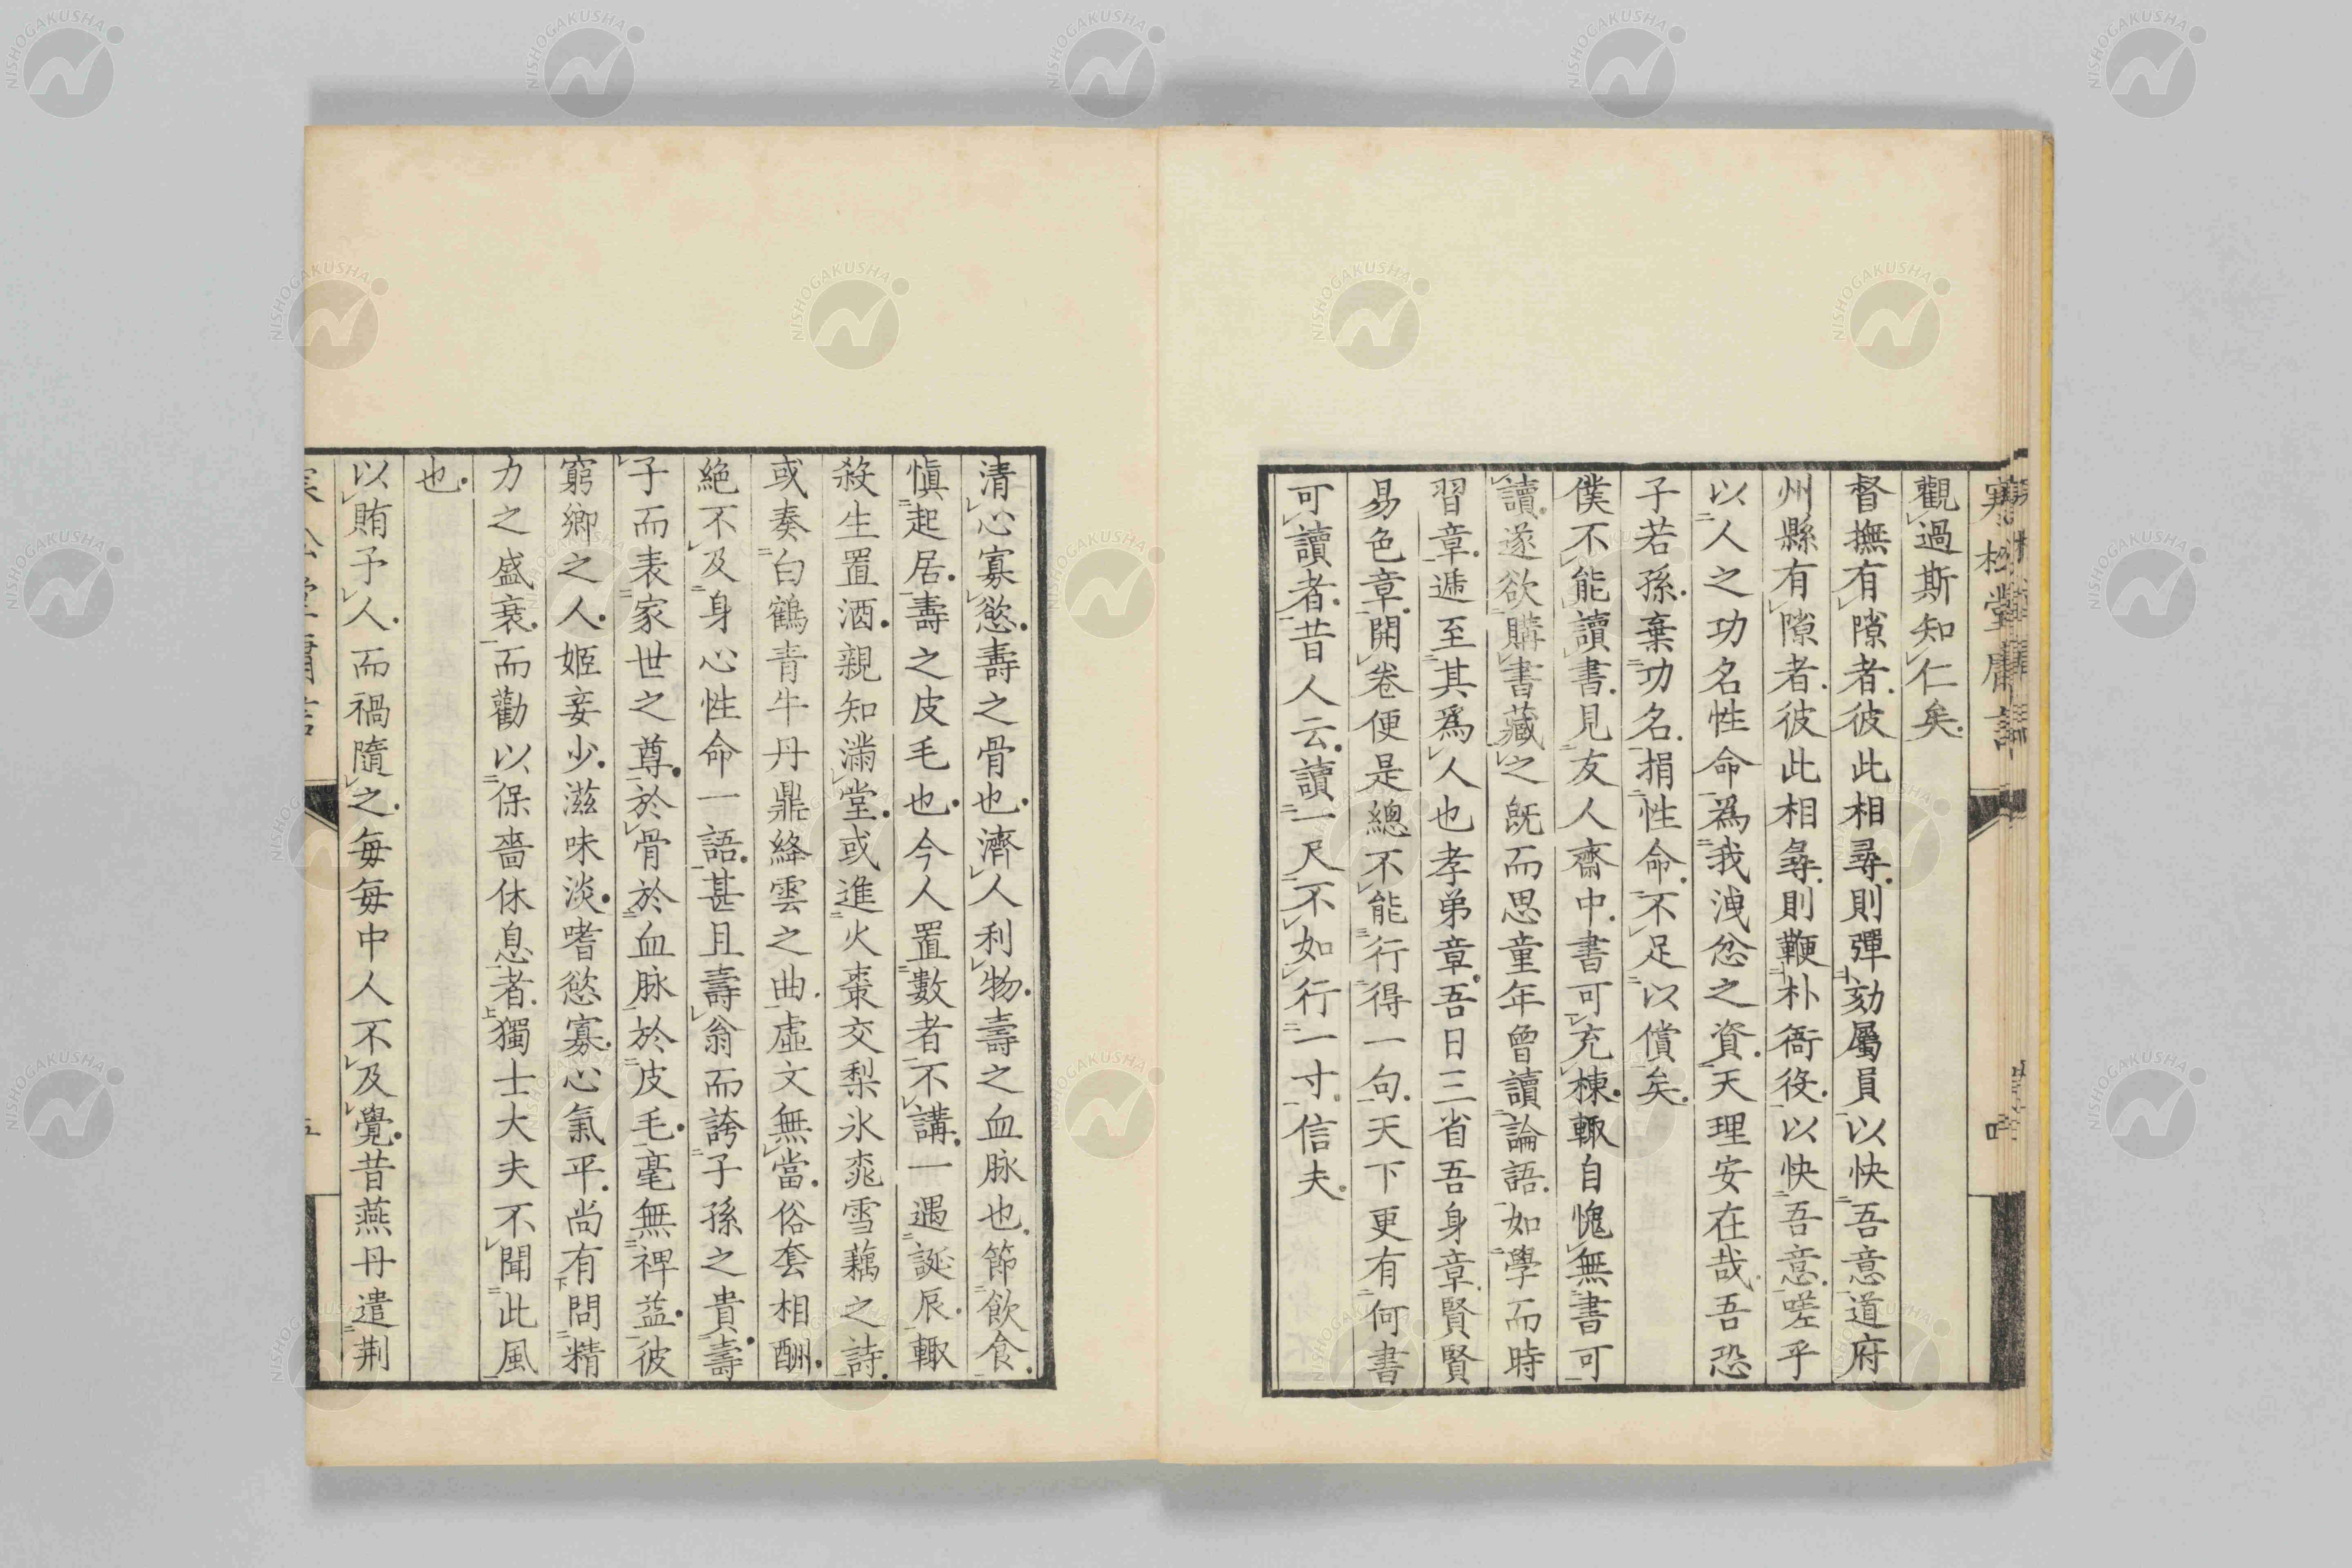 寒松堂庸言
四
觀過斯知仁矣
督撫有隙者彼此相尋則彈劾屬員以快吾意道府
州縣有隙者彼此相尋則鞭朴衙役以快吾意嗟乎
以人之功名性命為我洩忿之資天理安在哉吾恐
子若孫棄功名捐性命不足以償矣
僕不能讀書見友人齋中書可充棟輙自愧無書可
讀遂欲購書藏之既而思童年曾讀論語如學而時
習章遞至其為人也孝弟章吾日三省吾身章賢賢
易色章開卷便是總不能行得一句天下更有何書
可讀者昔人云讀一尺不如行一寸信夫
清心寡慾壽之骨也濟人利物壽之血脉也節飲食
慎起居壽之皮毛也今人置數者不講一遇誕辰輙
殺生置酒親知滿堂或進火棗交梨氷窕雪藕之詩
或奏白鶴青牛丹鼎絳雲之曲虛文無當俗套相酬
絕不及身心性命一語甚且壽翁而誇子孫之貴壽
子而表家世之尊於骨於血脉於皮毛毫無裨益彼
窮鄉之人姬妾少滋味淡嗜慾寡心氣平尚有問精
力之盛衰而勸以保嗇休息者獨士大夫不聞此風
也
以賄予人而禍隨之每每中人不及覺昔燕丹遣荆
五
NISHOGAKUSHA